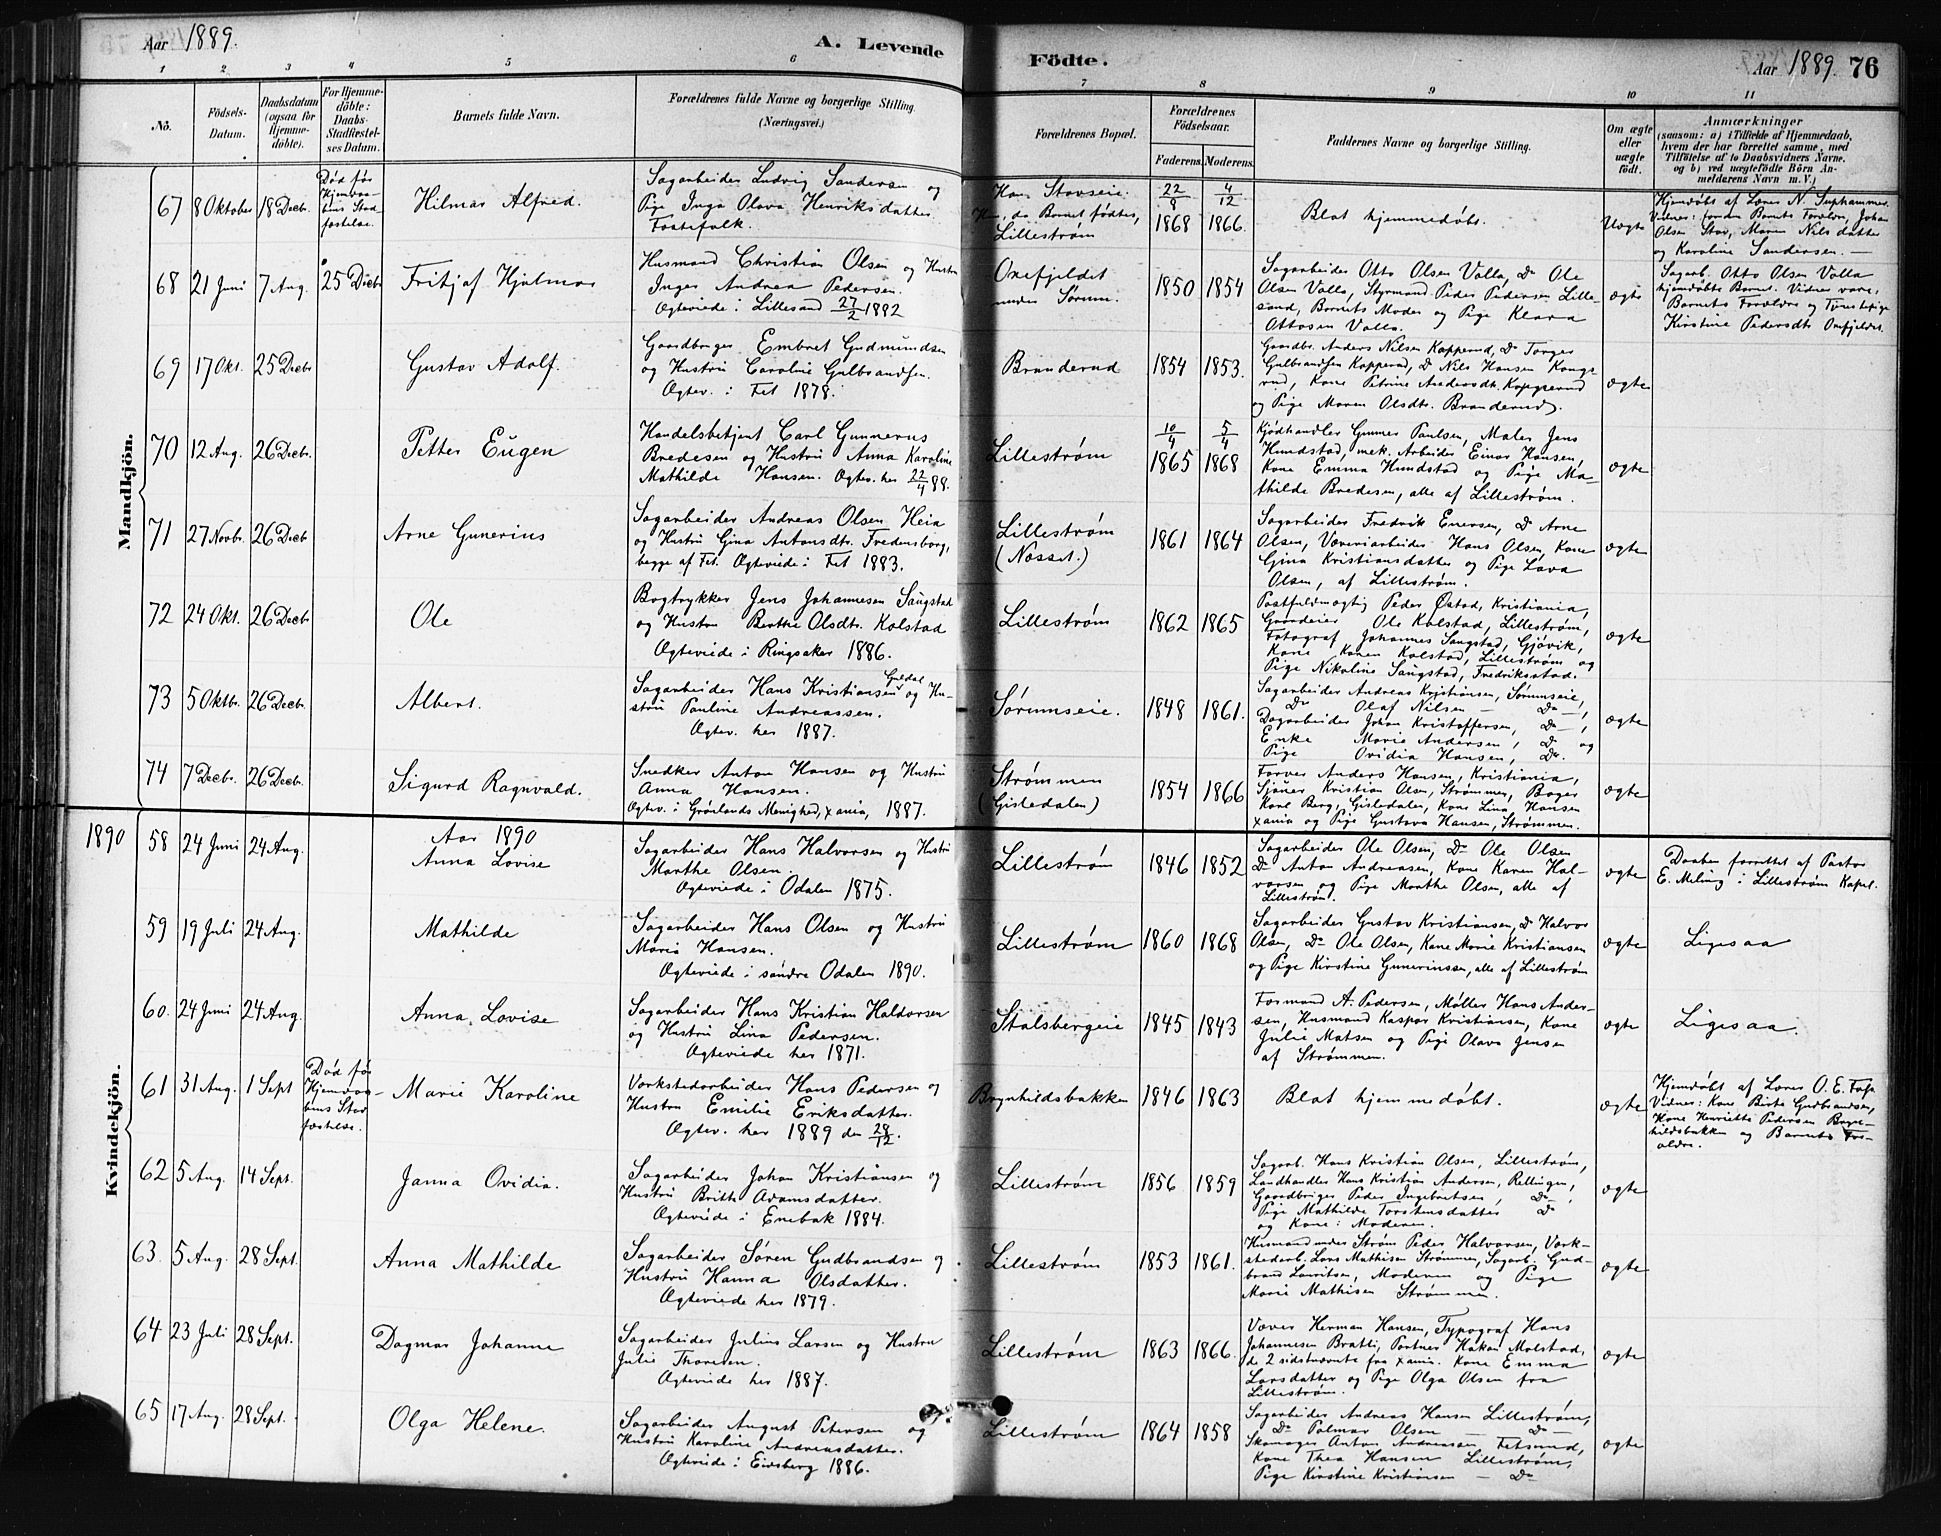 Aar 1889.
A. Levende
Födte.
Aar 1889. 76
1 2 3 4 5 6 7 8 9 10 11
No.
Födsels-Datum.
Daabsdatum (ogsaa for Hjemme-döbte).
For Hjemme-döbte: Daabs-Stadfæstel-ses Datum.
Barnets fulde Navn.
Forældrenes fulde Navne og borgerlige Stilling.
(Næringsvei.)
Forældrenes Bopæl.
Forældrenes Födselsaar.
Faderens. Moderens.
Faddernes Navne og borgerlige Stilling.
Om ægte eller uægte födt.
Anmærkninger
(saasom: a) i Tilfælde af Hjemmedaab, hvem der har forrettet samme, med Tilföielse af to Daabsvidners Navne. og b) ved uægtefödte Börn An-melderens Navn m. V.)
Mandkjön.
67 8 Oktober 18 Decbr.
Død før Hjemdaa-bens Stad-fæstelse.
Hilmar Alfred.
Sagarbeider Ludvig Sandersen og
Pige Inga Olava Henriksdatter
Lillestrøm
22/9 1868 4/12 1866.
Blot hjemmedøbt.
Uægte
Olsen Stav, Maren Nilsdatter
og Karoline Sandersen. —
68 21 Juni 7 Aug. 25 Decbr
Fritjof Hjalmar
Husmand Christian Olsen og Hustru
Inger Andrea Pedersen.
Ægteviede i Lillesand 27/2 1882
under Sørum.
1850 1854
Sagarbeider Otto Olsen Valla, Do Ole
Olsen Valla, Styrmand Peder Pedersen Lille-
sand, Barnets Moder og Pige Klara
Ottosen Valla.
ægte
Sagarb. Otto Olsen Valla
hjemdøbte Barnet. Vidner vare:
Barnets Forældre og Tjenestepige
69 17 Okt. 25 Decbr
Gustav Adolf.
Gaardbruger Embret Gudmundsen
og Hustru Caroline Gulbrandsen.
Ægtev. i Fet 1878.
Branderud
1854 1853.
Gaardbr. Anders Nilsen Kopperud, Do Torger
Gulbrandsen Kopperud, Do Nils Hansen Konge-
rud, Kone Petrine Andersdt. Kopperud
og Pige Maren Olsdtr. Branderud.
ægte
70 12 Aug. 26 Decbr.
Petter Eugen
Handelsbetjent Carl Gunnerus
Bredesen og Hustru Anna Karoline
Mathilde Hansen. Ægtev. her 22/4 88.
Lillestrøm
10/4 1865 5/4 1868
Kjødhandler Gunner Paulsen, Maler Jens
Hundstad, mek. Arbeider Einar Hansen,
Kone Emma Hundstad og Pige Ma-
thilde Bredesen, alle af Lillestrøm.
ægte
71 27 Novbr. 26 Decbr
Arne Gunerius
Sagarbeider Andreas Olsen Heia
og Hustru Gina Antonsdtr. Fredensborg,
begge af Fet. Ægteviede i Fet 1883.
Lillestrøm
1861 1864
Sagarbeider Fredrik Enersen, Do Arne
Olsen, Væveriarbeider Hans Olsen, Kone
Gina Kristiansdatter og Pige Lava
Olsen, af Lillestrøm.
ægte
72 24 Okt. 26 Decbr
Ole
Bogtrykker Jens Johannesen Saugstad
og Hustru Berthe Olsdtr. Kolstad
Ægteviede i Ringsaker 1886.
Lillestrøm
1862 1865
Postfuldmægtig Peder Østad, Kristiania,
Gaardeier Ole Kolstad, Lillestrøm,
Fotograf Johannes Saugstad, Gjøvik,
Kone Karen Kolstad, Lillestrøm og
Pige Nikoline Saugstad, Fredriksstad.
ægte
73 5 Oktbr. 26 Decbr.
Albert.
Sagarbeider Hans Kristiansen Guldal og Hu-
stru Pauline Andreassen.
Ægtev. her 1887.
Sørumseie.
1848 1861.
Sagarbeider Andreas Kristiansen, Sørumseie,
Do Olaf Nilsen — Do —,
Dagarbeider Johan Kristoffersen, Do —,
Enke Marie Andersen, Do og
Pige Ovidia Hansen, Do.
ægte
74 7 Decbr. 26 Decbr.
Sigurd Ragnvald.
Snedker Anton Hansen og Hustru
Anna Hansen.
Ægtev. i Grønlands Menighed, Xania, 1887.
Strømmen
(Gisledalen)
1854 1866
Farver Anders Hansen, Kristiania,
Karl Berg, Gisledalen, Kone Lina Hansen
Xania og Pige Gustava Hansen, Strømmen.
ægte
1890
Aar 1890
Kvindekjön.
58 24 Juni 24 Aug.
Anna Lovise
Sagarbeider Hans Halvorsen og Hustru
Marthe Olsen.
Ægteviede i Odalen 1875.
Lillestrøm
1846 1852
Sagarbeider Ole Olsen, Do Ole Olsen
Do Anton Andreasen, Kone Karen Hal-
vorsen og Pige Marthe Olsen, alle af
Lillestrøm.
ægte
Daaben forrettet af Pastor
E. Meling i Lillestrøm Kapel.
59 19 Juli 24 Aug.
Mathilde
Sagarbeider Hans Olsen og Hustru
Maria Hansen.
Ægteviede i søndre Odalen 1890.
Lillestrøm
1860 1868
Sagarbeider Gustav Kristiansen, Do Halvor
Olsen, Do Ole Olsen, Kone Marie Kristiansen
og Pige Kirstine Gunerinssen, alle af Lillestrøm
ægte
Ligesaa
60. 24 Juni 24 Aug.
Anna Lovise
Sagarbeider Hans Kristian Haldorsen
og Hustru Lina Pedersen.
Ægteviede her 1871.
Stalsbergeie
1845 1843
Formand A. Pedersen, Møller Hans Ander-
sen, Husmand Kaspar Kristiansen, Kone
Julie Matsen og Pige Olava Jensen
af Strømmen.
ægte
Ligesaa.
61 31 Aug. 1 Sept
Død før Hjemdaa-bens Stad-fæstelse.
Marie Karoline
Værkstedarbeider Hans Pedersen og
Hustru Emilie Eriksdatter.
Ægtev. her 1889 den 28/12.
Brynhildsbakken
1846 1863
Blot hjemmedøbt.
ægte
Vidner: Kone Birte Gudbrandsen,
Kone Henriette Pedersen Bryn-
hildsbakken og Barnets For-
ældre.
62 5 Aug. 14 Sept.
Janna Ovidia.
Sagarbeider Johan Kristiansen og
Hustru Brith Adamsdatter.
Ægteviede i Enebak 1884.
Lillestrøm
1856 1859
Sagarb. Hans Kristian Olsen, Lillestrøm,
Landhandler Hans Kristian Andersen, Rellingen,
Gaardbruger Peder Ingebretsen, Do,
Pige Mathilde Torstensdatter Do
og Kone: Moderen.
ægte
63. 5 Aug. 28 Sept.
Anna Mathilde
Sagarbeider Søren Gudbrandsen og
Hustru Hanna Olsdatter.
Ægteviede her 1879.
Lillestrøm
1853 1861.
Husmand under Strøm Peder Halvorsen, Værk-
stedarb. Lars Mathisen Strømmen, Sagarb. Gud-
brand Lauritsen, Moderen og Pige
Marie Mathisen Strømmen.
ægte
64 23 Juli 28 Sept.
Dagmar Johanne
Sagarbeider Julius Larsen og Hustru
Julie Thoresen.
Ægteviede her 1887.
Lillestrøm
1863 1866.
Væver Herman Hansen, Typograf Hans
Johannesen Bratli, Portner Hakon Molstad,
de 2 sidstnævnte fra Xania. Kone Emma
Larsdatter og Pige Olga Olsen fra
Lillestrøm.
ægte
65 17 Aug. 28 Sept.
Olga Helene.
Sagarbeider August Petersen og
Hustru Karoline Andreasdatter.
Ægteviede i Eidsberg 1886.
Lillestrøm
1864 1858
Sagarbeider Andreas Hansen Lillestrøm,
Do Palmar Olsen — Do —
Skomager Anton Andreasen Fetsund,
Kone Thea Hansen Lillestrøm,
Pige Kirstine Kristiansen — Do
ægte